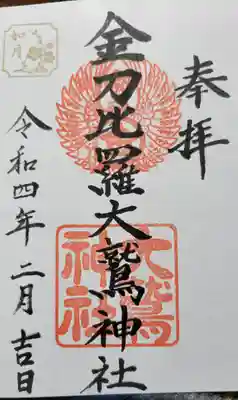 奉拝
金刀比羅大鷲神社
令和四年二月吉日
大鷲
神社
如月